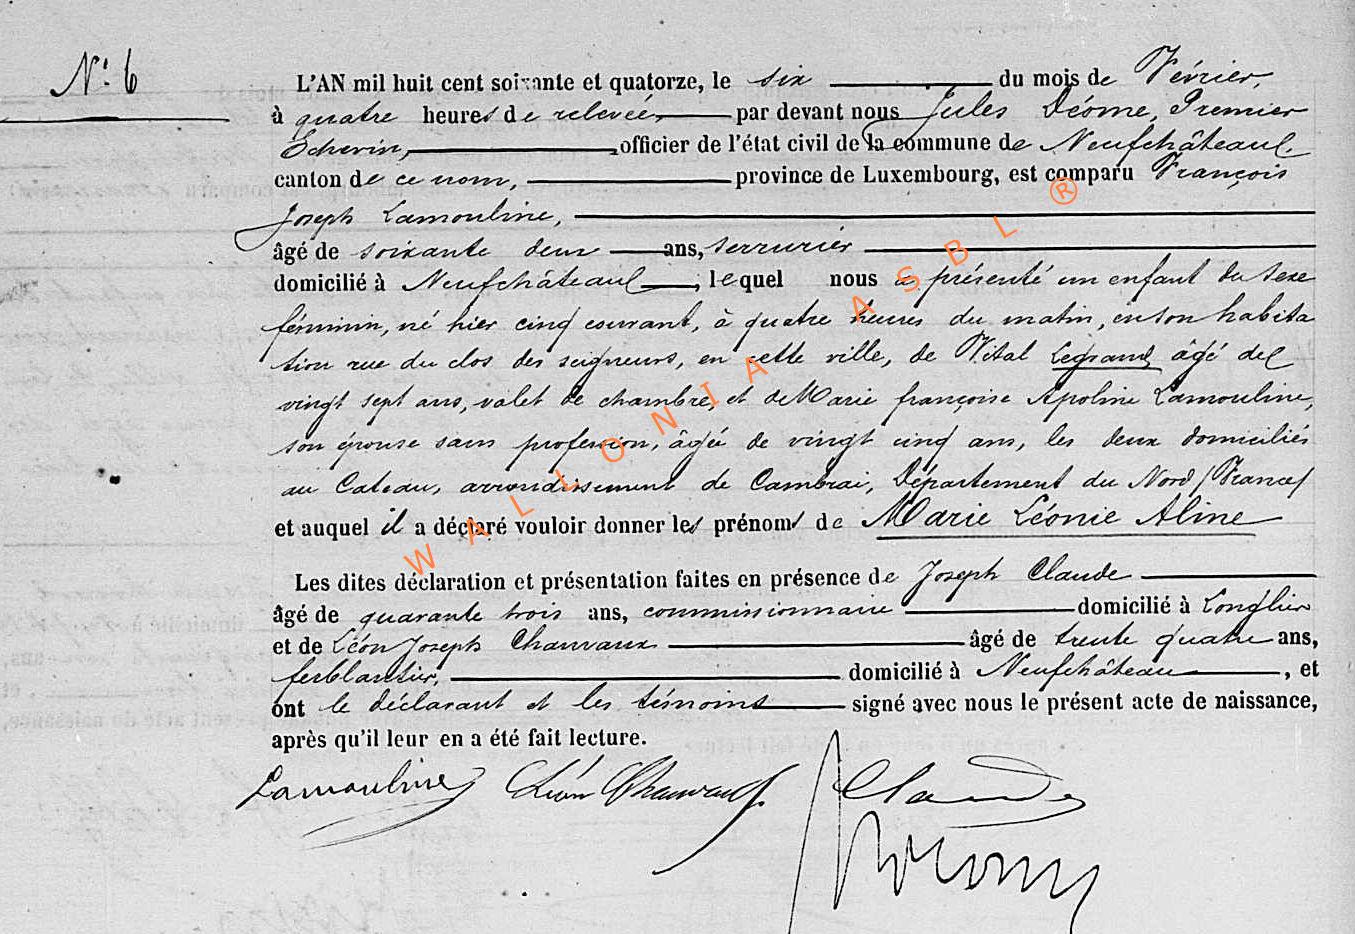 N° 6
L'AN mil huit cent soixante et quatorze, le six du mois de Février,
à quatre heures de relevée, par devant nous Jules Déome, Premier
Echevin, officier de l'état civil de la commune de Neufchâteau,
canton de ce nom, province de Luxembourg, est comparu François
Joseph Lamouline,
âgé de soixante deux ans, serrurier
domicilié à Neufchâteau, lequel nous a présenté un enfant du sexe
féminin, né hier cinq courant, à quatre heures du matin, en son habita
tion rue du clos des seigneurs, en cette ville, de Vital Legrand, âgé de
vingt sept ans, valet de chambre, et de Marie françoise Apoline Lamouline,
son épouse sans profession, âgée de vingt cinq ans, les deux domiciliés
au Cateau, arrondissement de Cambrai, Département du Nord (France)
et auquel il a déclaré vouloir donner les prénoms de Marie Léonie Aline
Les dites déclaration et présentation faites en présence de Joseph Claude
âgé de quarante trois ans, commissionnaire domicilié à Longlier
et de Léon Joseph Chauvaux âgé de trente quatre ans,
ferblantier, domicilié à Neufchâteau, et
ont le déclarant et les témoins signé avec nous le présent acte de naissance,
après qu'il leur en a été fait lecture.
Lamouline Léon Chauvaux Claude
WALLONIA ASBL ®